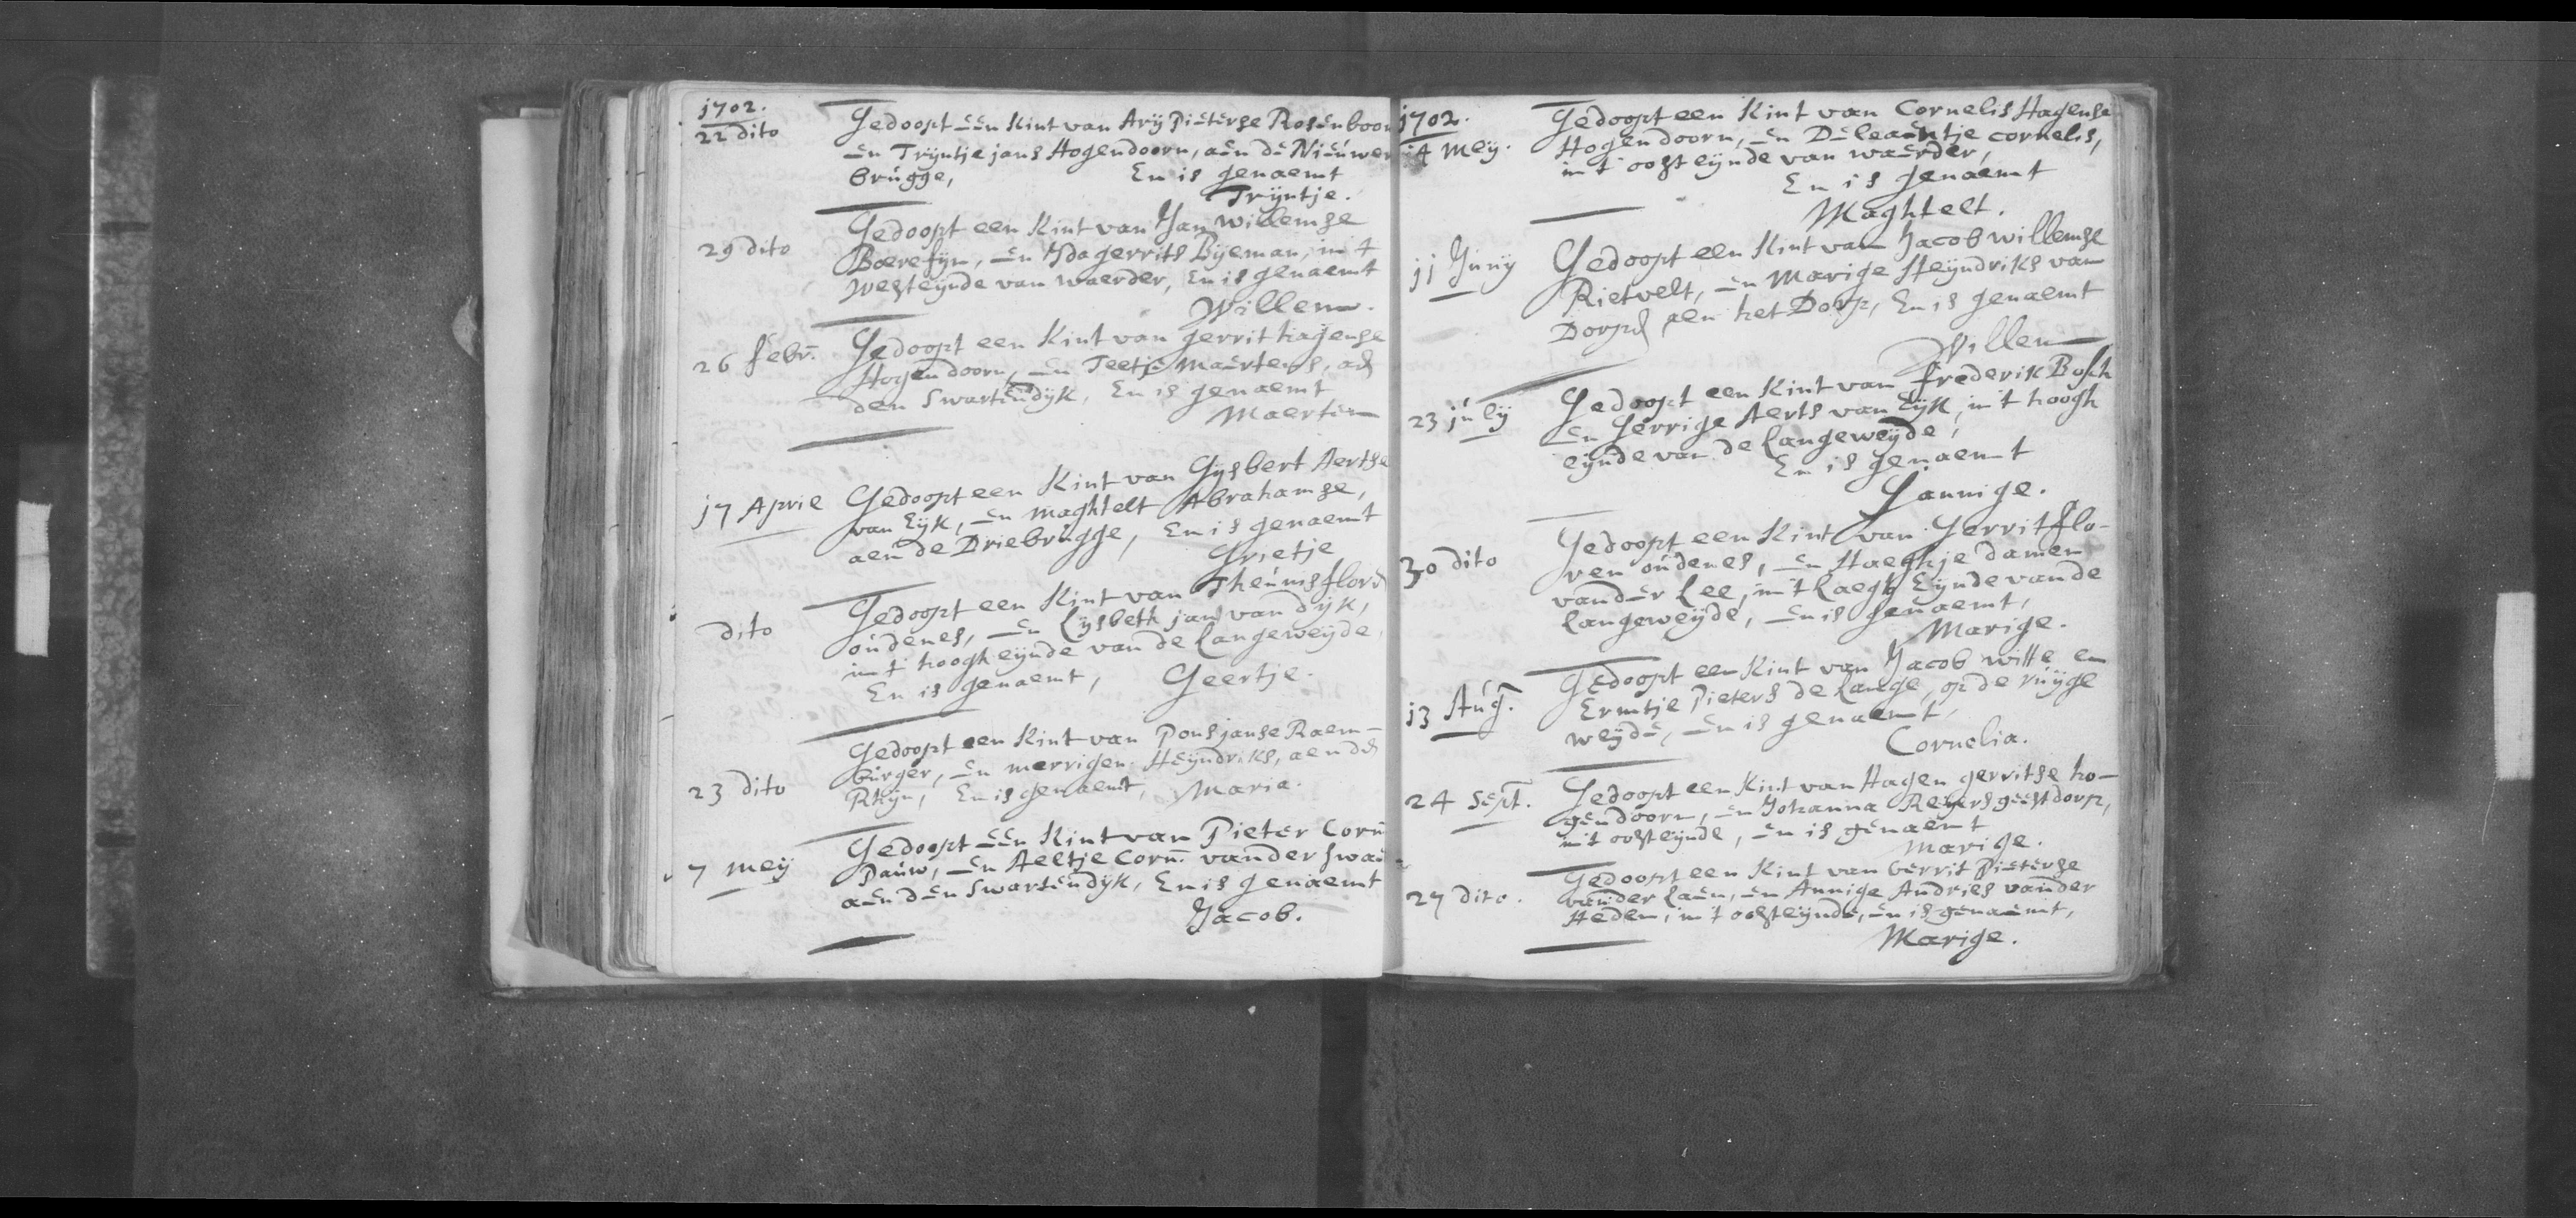 1702.
22 dito Gedoopt een Kint van Arij Pieterse Rosenboom
en Trijntje jans Hogendoorn, aen de Nieuwer
brugge, En is genaemt
Trijntje.
29 dito Gedoopt een Kint van Jan Willemse
Boerefijn, en Yda gerrits Bijeman, in t
Westeijnde van Waerder, En is genaemt
Willem.
26 febr. Gedoopt een Kint van gerrit hagense
Hogendoorn, en Teetje Maertens, aen
den Swartendijk, En is genaemt
Maerten
17 April Gedoopt een Kint van Gijsbert Aertse
van Eijk, en Maghtelt Abrahamse,
aen de Driebrugge, En is genaemt
Grietje
dito Gedoopt een Kint van Theunis floris
oudenes, en Lijsbeth jans van dijk,
in t hoogh eijnde van de Langeweijde,
En is genaemt, Geertje.
23 dito Gedoopt een Kint van Pons janse Raem-
burger, en merrigen Heijndriks, aen den
Rhijn, En is genaemt, Maria.
7 meij Gedoopt een Kint van Pieter Corn.
Pauw, en Aeltje Corn. vander Swaen
aen den Swartendijk, En is genaemt
Jacob.
1702.
14 Meij. Gedoopt een Kint van Cornelis Hagense
Hogendoorn, en cornelis,
in t oosteijnde van waerder,
En is genaemt
Maghtelt.
11 Junij Gedoopt een Kint van Jacob willemse
Rietvelt, en Marige Heijndriks van
Dorp, aen het Dorp, En is genaemt
Willem
23 julij Gedoopt een Kint van frederik Bosch
en Gerrige Aerts van Eijk, in t hoogh
eijnde van de Langeweijde,
En is genaemt
Jannige.
30 dito Gedoopt een Kint van Gerrit flo-
ren oudenes, en Haeghje damen
vander Lee, in t Laegh Eijnde van de
Langeweijde, en is genaemt,
Marige.
13 Aug. Gedoopt een Kint van Jacob witte en
Ermtje Pieters de Lange, op de ruijge
weijde, en is genaemt,
Cornelia.
24 Sept. Gedoopt een Kint van Hagen gerritse ho-
gendoorn, en Johanna Reijers geestdorp,
in t oosteijnde, en is genaemt
Marige.
27 dito. Gedoopt een Kint van Gerrit Pieterse
vander Laen, en Annige Andries vander
Heden, in t oosteijnde, en is genaemt,
Marige.